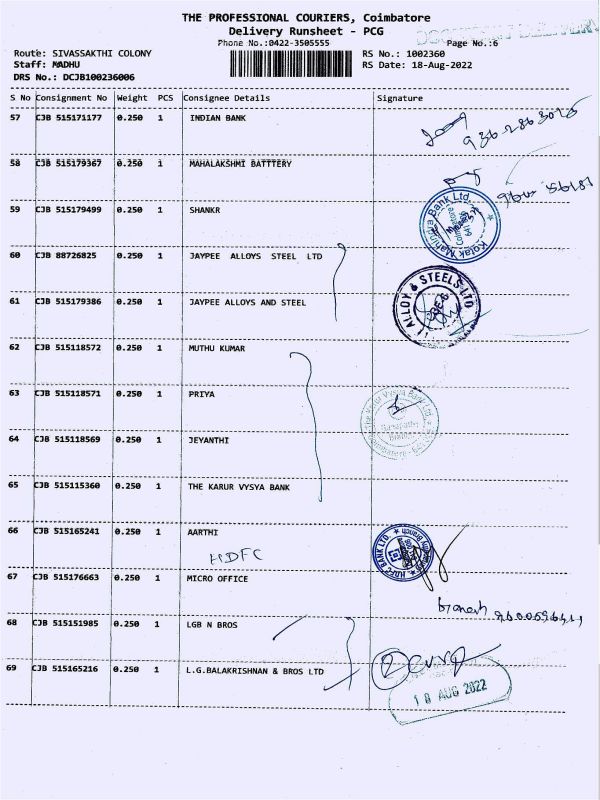 THE PROFESSIONAL COURIERS, Coimbatore
Delivery Runsheet - PCG
Phone No.:0422-3505555
Page No.:6
Route: SIVASSAKTHI COLONY
RS No.: 1002360
Staff: MADHU
RS Date: 18-Aug-2022
DRS No.: DCJB100236006
S No Consignment No Weight PCS Consignee Details Signature
57 CJB 515171177 0.250 1 INDIAN BANK
58 CJB 515179367 0.250 1 MAHALAKSHMI BATTTERY
59 CJB 515179499 0.250 1 SHANKR
Kotak Mahindra Bank Ltd.
60 CJB 88726825 0.250 1 JAYPEE ALLOYS STEEL LTD
ALLOY & STEELS LTD
61 CJB 515179386 0.250 1 JAYPEE ALLOYS AND STEEL
62 CJB 515118572 0.250 1 MUTHU KUMAR
63 CJB 515118571 0.250 1 PRIYA
Karur Vysya Bank Ltd.
64 CJB 515118569 0.250 1 JEYANTHI
65 CJB 515115360 0.250 1 THE KARUR VYSYA BANK
66 CJB 515165241 0.250 1 AARTHI
HDFC BANK LTD.
HDFC
67 CJB 515176663 0.250 1 MICRO OFFICE
68 CJB 515151985 0.250 1 LGB N BROS
69 CJB 515165216 0.250 1 L.G.BALAKRISHNAN & BROS LTD
18 AUG 2022